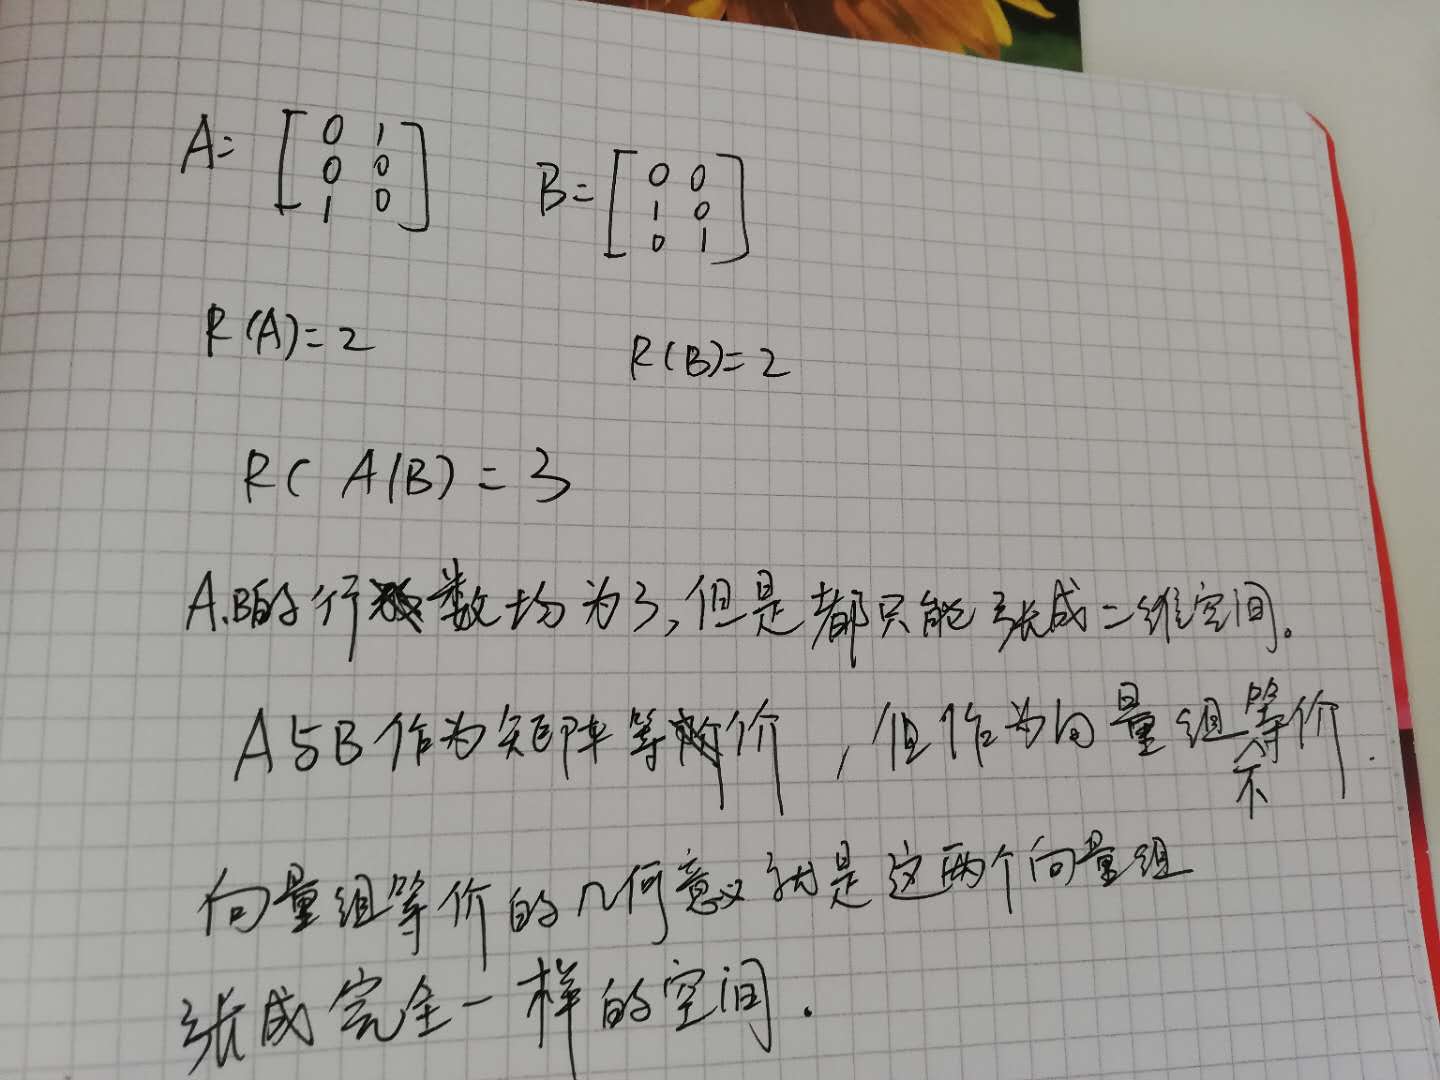 A= [0 1
0 0
1 0]
B= [0 0
1 0
0 1]
R(A)=2
R(B)=2
R(A|B)=3
A.B的行数均为3,但是都只能张成二维空间。
A与B作为矩阵等价,但作为向量组不等价.
向量组等价的几何意义就是这两个向量组
张成完全一样的空间.